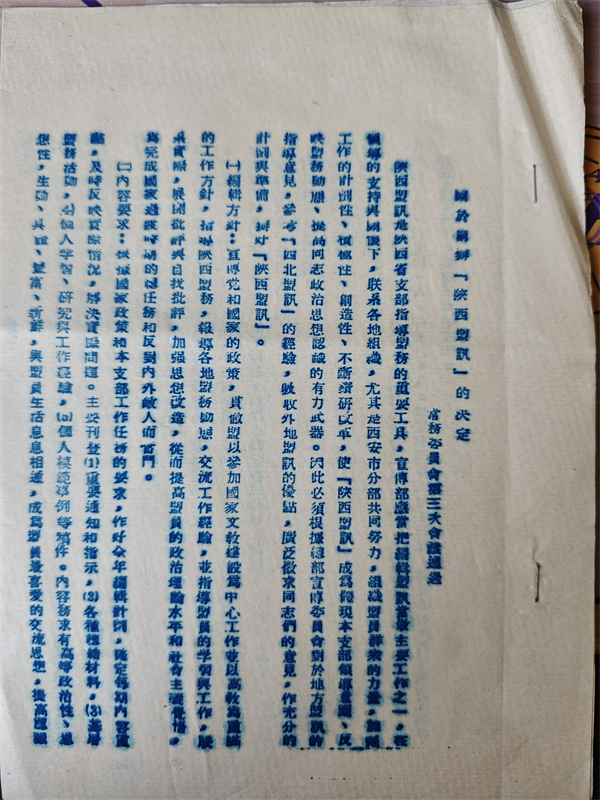 關於開辦「陝西盟訊」的決定
常務委員會第三次會議通過
陝西盟訊是陝西省支部指導盟務的重要工具，宣傳部應當把編輯盟訊當做主要工作之一，在
領導的支持與關懷下，联系各地組織，尤其是西安市分部共同努力，組織盟員群衆的力量，加强
工作的計劃性、積極性、創造性、不斷鑽研改革，使「陝西盟訊」成爲體現本支部領導意圖、反
映盟務動态、提高同志政治思想認識的有力武器。因此必須根據總部宣傳委員會對於地方盟訊的
指導意見，参考「西北盟訊」的經驗，吸收外地盟訊的優點，廣泛徵求同志們的意見，作充分的
計劃與準備，辦好「陝西盟訊」。
㈠編輯方針：宣傳党和國家的政策，貫徹盟以参加國家文教建設爲中心工作並以高教爲
的工作方針，指導陝西盟務，報導各地盟務動态，交流工作經驗，並指導盟員的学習與工作，联
系實際，展開批評與自我批評，加强思想改造，從而提高盟員的政治理論水平和社會主義覺悟，
爲完成國家過渡時期的總任務和反對內外敵人而奮鬥。
㈡内容要求：根據國家政策和本支部工作任務的要求，作好全年編輯計劃，確定每期內容重
點，及時反映實際情况，解決實際問題。主要刊登⑴重要通知和指示，⑵各種總結材料，⑶基層
盟務活動，⑷個人学習、研究與工作經驗，⑸個人模範事例等稿件。内容務求有高等政治性、思
想性，生動、具體、豐富、新鮮，與盟員生活息息相通，成爲盟員最喜愛的交流思想，提高認識